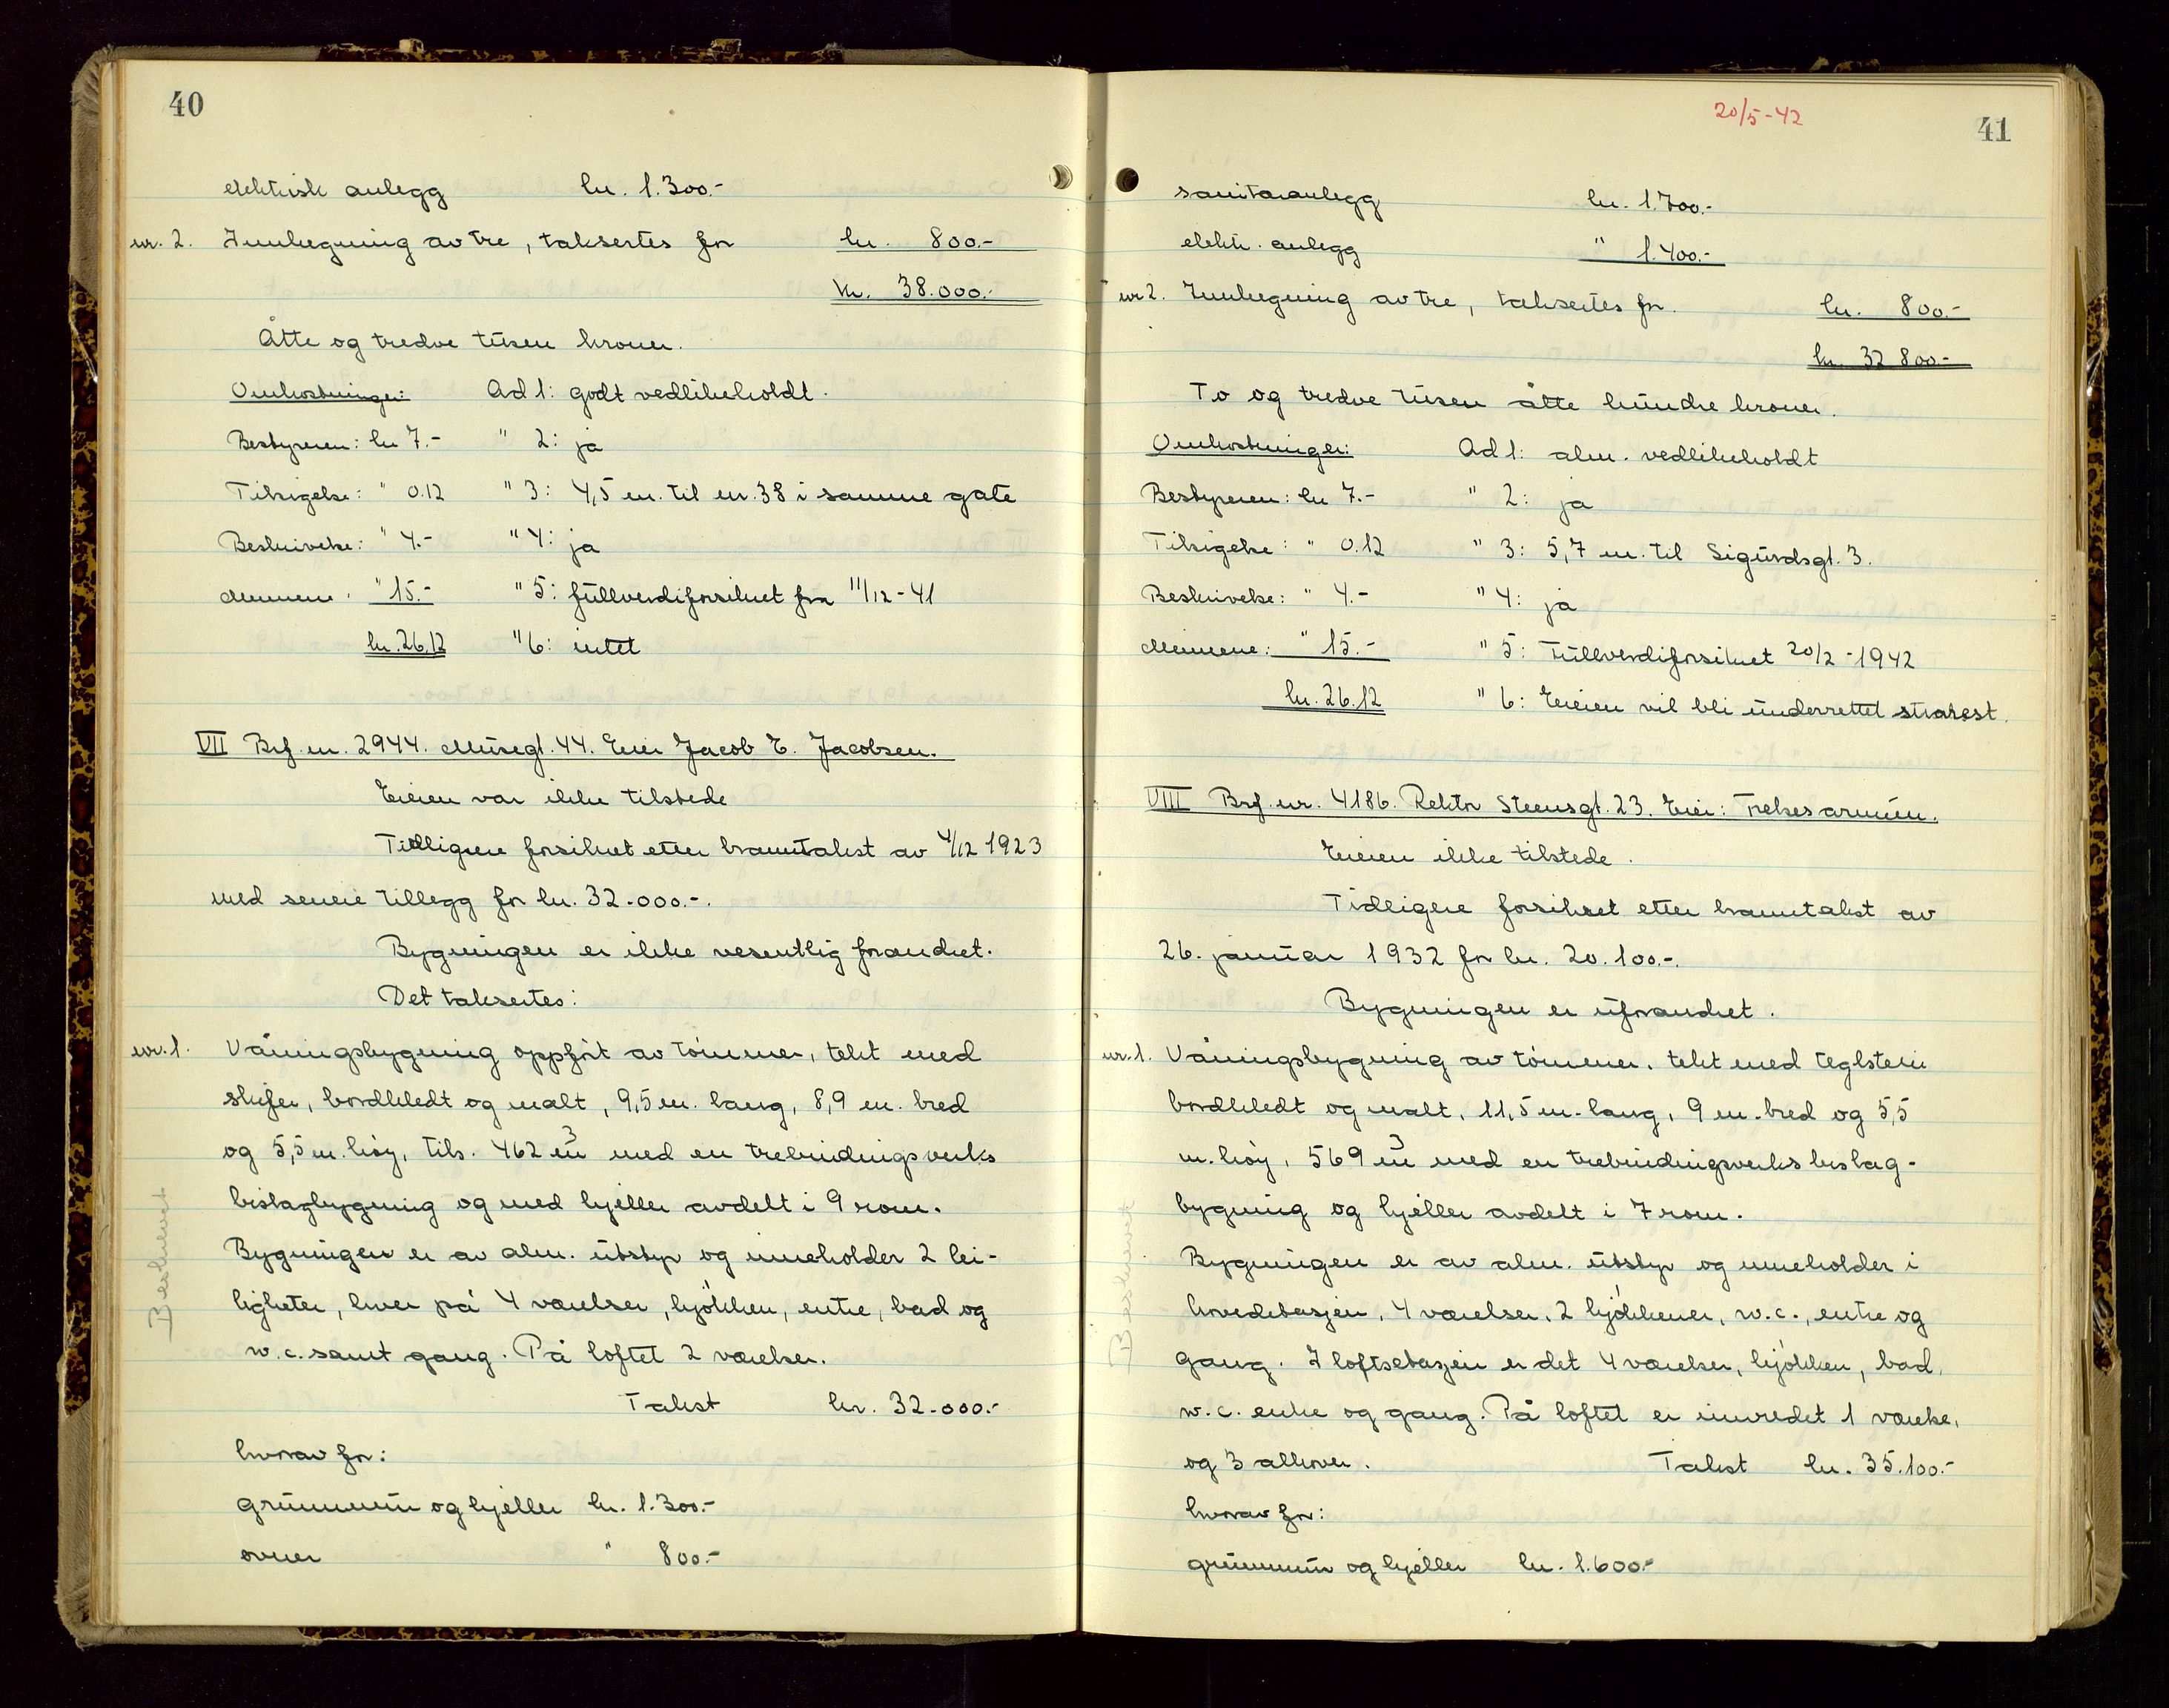 40
elektrisk anlegg kr. 1.300.-
nr. 2. Innhegning av tre, taksertes for kr. 800.-
kr. 38.000.-
Åtte og tredve tusen kroner.
Omkostninger: Ad 1: godt vedlikeholdt.
Bestyreren: kr 7.- " 2: ja
Tilsigelse: " 0.12 " 3: 4,5 m. til nr. 38 i samme gate
Beskrivelse: " 4.- " 4: ja
Mennene: " 15.- " 5: fullverdiforsikret fra 11/12-41
kr. 26.12 " 6: intet
VII Brf. nr. 2944. Musegt. 44. Eier Jacob E. Jacobsen.
Eieren var ikke tilstede
Tidligere forsikret etter branntakst av 4/12 1923
med senere tillegg for kr. 32.000.-.
Bygningen er ikke vesentlig forandret.
Det taksertes:
nr. 1. Våningsbygning oppført av tømmer, tekt med
skifer, bordkledt og malt, 9,5 m. lang, 8,9 m. bred
og 5,5 m. høy, tils. 462 m3 med en trebindingsverks
bislagbygning og med kjeller avdelt i 9 rom.
Bygningen er av alm. utstyr og inneholder 2 lei-
ligheter, hver på 4 værelser, kjøkken, entre, bad og
w.c. samt gang. På loftet 2 værelser.
Takst kr. 32.000.-
hvorav for:
grunnmur og kjeller kr. 1.300.-
ovner " 800.-
Beskrevet
20/5-42
41
sanitæranlegg kr. 1.700.-
elektr. anlegg " 1.400.-
nr 2. Innhegning av tre, taksertes for. kr. 800.-
kr. 32 800.-
To og tredve tusen åtte hundre kroner.
Omkostninger: Ad 1: alm. vedlikeholdt
Bestyreren: kr 7.- " 2: ja
Tilsigelse: " 0.12 " 3: 5,7 m. til Sigurdsgt. 3.
Beskrivelse: " 4.- " 4: ja
Mennene: " 15.- " 5: Fullverdiforsikret 20/2-1942
kr. 26.12 " 6: Eieren vil bli underrettet straksst.
VIII Brf. nr. 4186. Rektor Steensgt. 23. Eier: Frelsesarmeen.
Eieren ikke tilstede.
Tidligere forsikret etter branntakst av
26. januar 1932 for kr. 20.100.-.
Bygningen er uforandret.
nr. 1. Våningsbygning av tømmer. tekt med teglstein
bordkledt og malt, 11,5 m. lang, 9 m. bred og 5,5
m. høy, 569 m3 med en trebindingsverks bislag-
bygning og kjeller avdelt i 7 rom.
Bygningen er av alm. utstyr og inneholder i
hovedetasjen, 4 værelser, 2 kjøkkener, w.c., entre og
gang. I loftsetasjen er det 4 værelser, kjøkken, bad,
w.c. entre og gang. På loftet er innredet 1 værelse,
og 3 alkover. Takst kr. 35.100.-
hvorav for:
grunnmur og kjeller kr. 1.600.-
Beskrevet